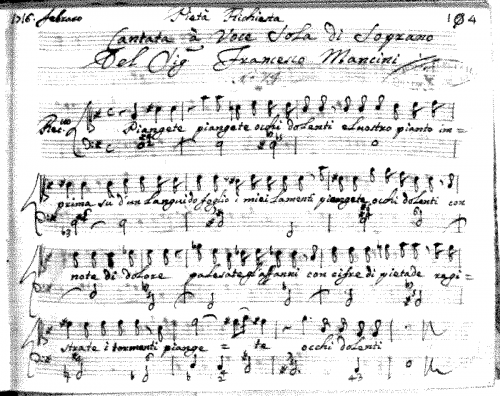 1716. febraro Pietà Richiesta 104
Cantata à Voce Sola di Soprano
Del Sig.r Francesco Mancini
Rec.vo Piangete piangete occhi dolenti e'l uostro pianto im=
prima su d'un languido foglio i miei lamenti piangete occhi dolenti con
note di dolore palesate gl'affanni con cifre di pietade regi=
strate i tormenti piange = te occhi dolenti